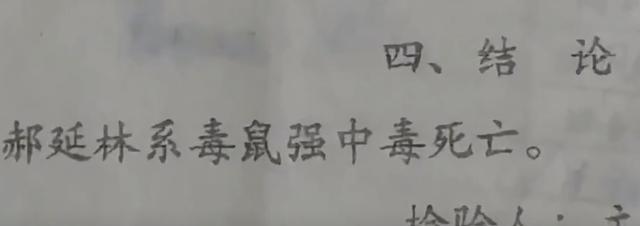 四、结 论
郝延林系毒鼠强中毒死亡。
检验人：